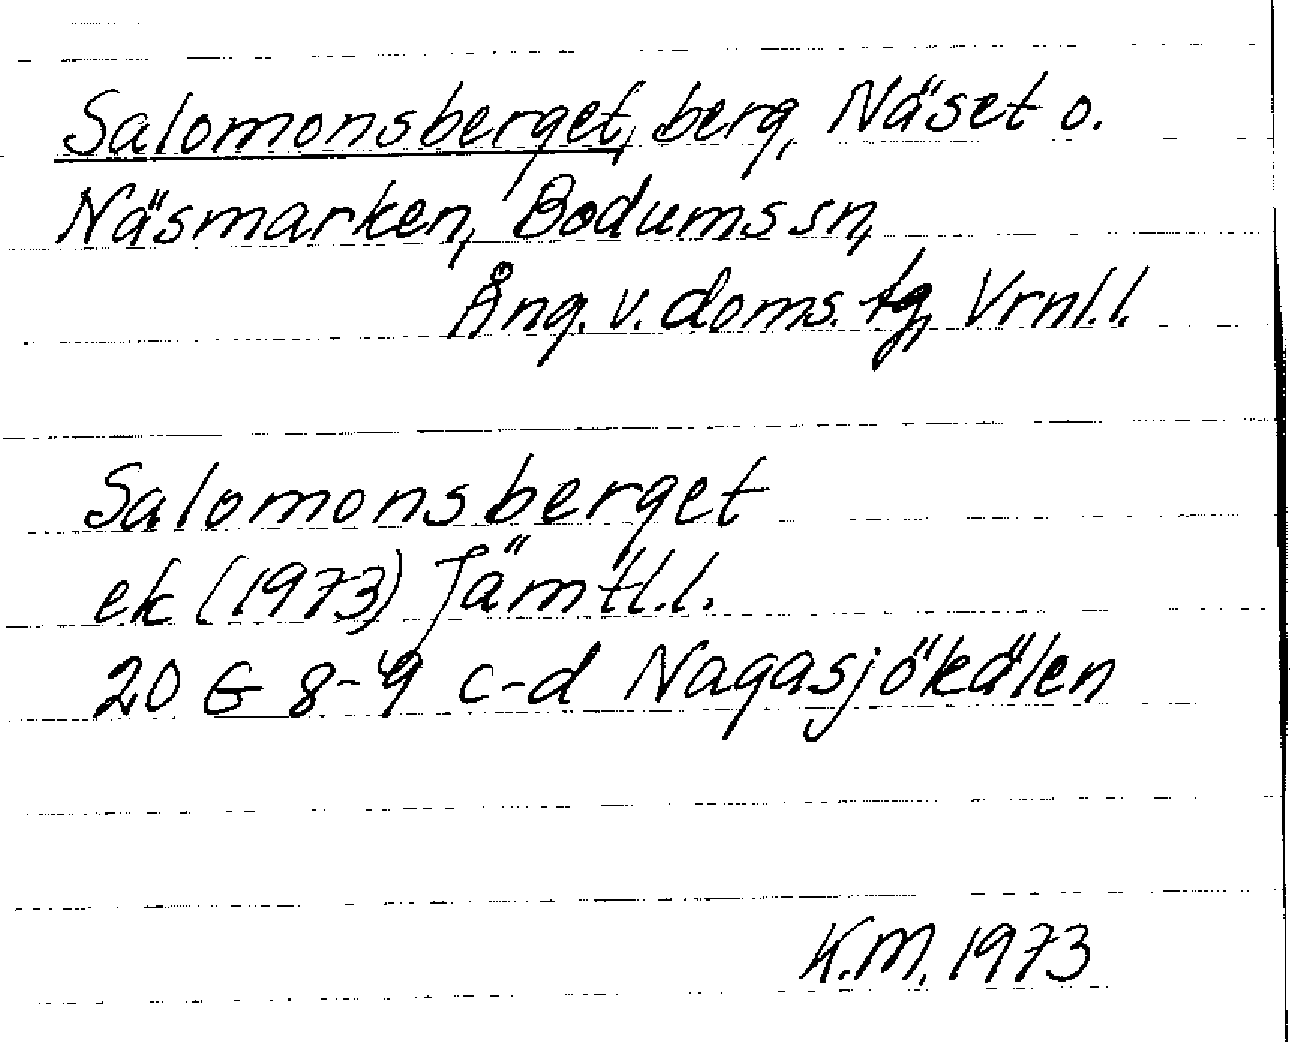 Salomonsberget, berg, Näset o.
Näsmarken, Bodums sn,
Ång. v. doms. tg, Vrnl.l.
Salomonsberget
ek (1973) Jämtl.l.
20 G 8-9 c-d Nagasjökölen
K.M. 1973